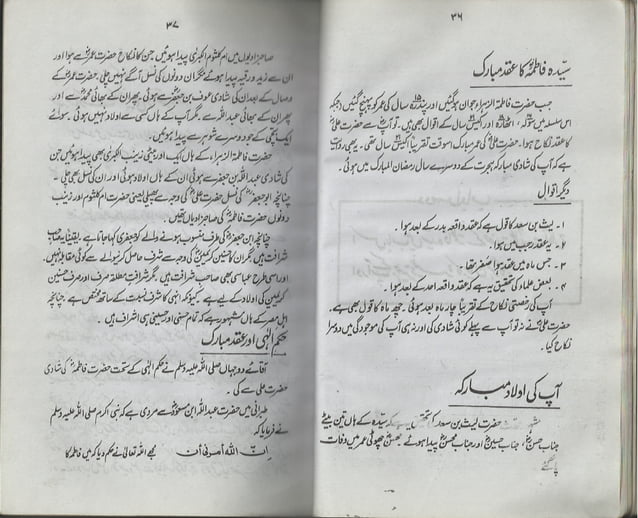 ۳۶
سیدہ فاطمہؓ کا عقد مبارک
جب حضرت فاطمۃ الزہراء جوان ہو گئیں اور پندرہ سال کی عمر کو پہنچ گئیں (جبکہ
اس سلسلہ میں سولہ، اٹھارہ اور اکیس سال کے اقوال بھی ہیں۔ تو آپ سے حضرت علیؓ
کا عقد نکاح ہوا۔ حضرت علیؓ کی عمر مبارک اسوقت تقریباً اکیس سال تھی۔ یہی روایت
ہے کہ آپ کی شادی مبارک ہجرت کے دوسرے سال رمضان المبارک میں ہوئی۔
دیگر اقوال
۱۔ لیث بن سعد کا قول ہے کہ عقد واقعہ بدر کے بعد ہوا۔
۲۔ یہ عقد رجب میں ہوا۔
۳۔ جس ماہ میں عقد ہوا صفر تھا۔
۴۔ بعض علماء کی تحقیق یہ ہے کہ عقد واقعہ احد کے بعد ہوا۔
آپ کی رخصتی نکاح کے تقریباً چار ماہ بعد ہوئی۔ چھ ماہ کا قول بھی ہے۔
حضرت علیؓ نے نہ تو آپ سے پہلے کوئی شادی کی اور نہ ہی آپ کی موجودگی میں دوسرا
نکاح کیا۔
آپ کی اولاد مبارکہ
حضرت لیث بن سعد کا تحقیق ہے کہ سیدہ کے ہاں تین بیٹے
جناب حسنؓ، جناب حسینؓ اور جناب محسنؓ پیدا ہوئے محسن چھوٹی عمر میں وفات
پا گئے
۳۷
صاحبزادیوں میں ام کلثوم الکبریٰ پیدا ہوئیں جن کا نکاح حضرت عمرؓ سے ہوا اور
ان سے زید و رقیہ پیدا ہوئے مگر ان دونوں کی نسل آگے نہیں چلی۔ حضرت عمرؓ کے
وصال کے بعد ان کی شادی عوف بن جعفرؓ سے ہوئی۔ پھر ان کے بھائی محمدؓ سے اور
پھر ان کے بھائی عبداللہ سے۔ مگر آپ کے ہاں کسی سے اولاد نہیں ہوئی۔ سوائے
ایک بچی کے جو دوسرے شوہر سے پیدا ہوئیں۔
حضرت فاطمۃ الزہراء کے ہاں ایک اور بیٹی زینب الکبریٰ بھی پیدا ہوئیں جن
کی شادی عبداللہ بن جعفر سے ہوئی ان کے ہاں اولاد ہوئی اور ان کی نسل بھی چلی۔
چنانچہ ابو جعفرؓ کی نسل حضرت علیؓ کی وجہ سے پھیلی یعنی حضرت ام کلثوم اور زینب
دونوں حضرت فاطمہؓ کی صاحبزادیاں تھیں۔
چنانچہ ابن جعفرؓ کی طرف منسوب ہونے والے کو جعفری کہا جاتا ہے۔ یقیناً یہ صاحب
شرافت ہیں۔ مگر ان کا حسنین کریمین کی وجہ سے شرف حاصل کرنے والے سے کوئی مقابلہ نہیں۔
اور اسی طرح عباسی بھی صاحب شرافت ہیں۔ مگر شرافت مطلقہ صرف اور صرف حسنین
کریمین کی اولاد کے لیے ہے۔ کیونکہ انہی کا شرف نسبت کے ساتھ مختص ہے۔ چنانچہ
اہل مصر کے ہاں مشہور ہے کہ تمام حسنی اور حسینی ہی اشراف ہیں۔
حکم الٰہی اور عقد مبارک
آقائے دو جہاں صلی اللہ علیہ وسلم نے حکم الٰہی کے تحت حضرت فاطمہؓ کی شادی
حضرت علی سے کی۔
طبرانی میں حضرت عبداللہ ابن مسعودؓ سے مروی ہے کہ نبی اکرم صلی اللہ علیہ وسلم
نے فرمایا کہ
ان اللہ أمرنی أن مجھے اللہ تعالیٰ نے حکم دیا کہ میں فاطمہ کا